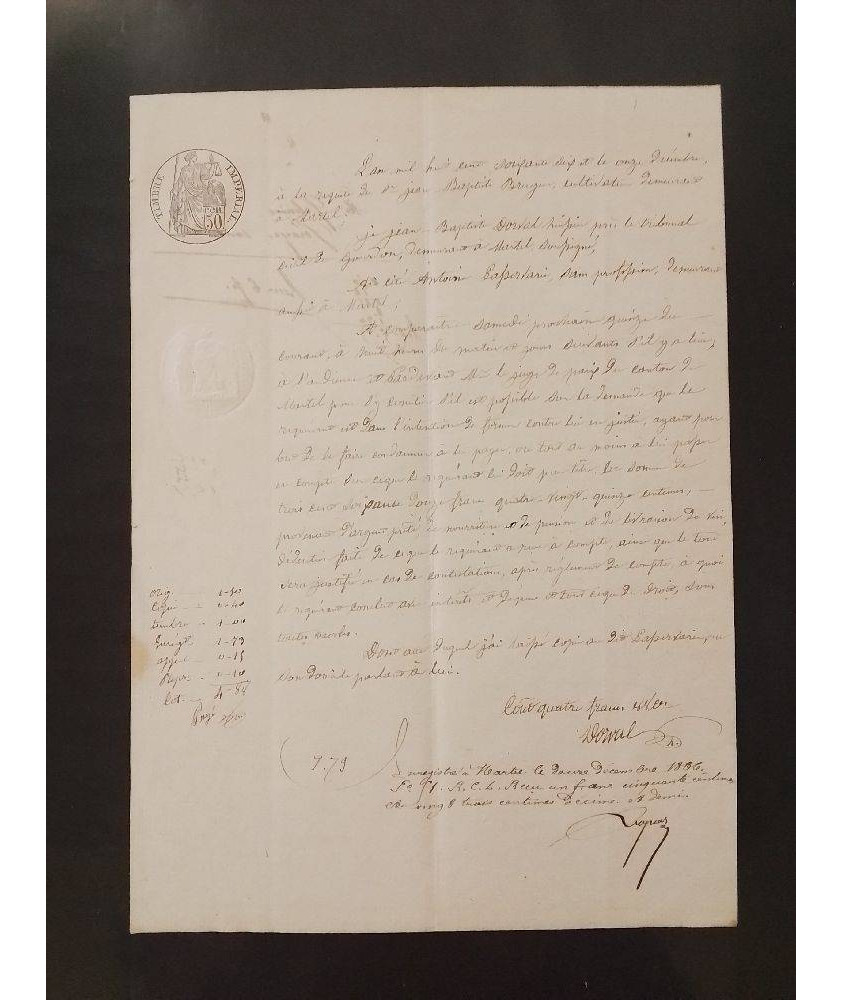 TIMBRE IMPERIAL
50
L'an mil huit cent soixante six et le onze Décembre,
à la requête de Sr jean Baptiste cultivateur demeurant
à Martel.
je jean Baptiste Dorval huissier près le tribunal
civil de Gourdon, demeurant à Martel soussigné,
cité Antoine sans profession, demeurant
aussi à Martel,
A comparaitre samedi prochain quinze du
courant, à neuf heures du matin et jours suivants s'il y a lieu,
à l'audience et pardevant Mr le juge de paix du canton de
Martel pour s'y concilier s'il est possible sur la demande que le
requérant est dans l'intention de former contre lui en justice, ayant pour
but de le faire condamner à lui payer, ou tout au moins à lui passer
en compte sur ce que le requérant lui doit la somme de
trois cent soixante douze francs quatre-vingt-quinze centimes,
provenant d'argent prêté de nourriture et de pension et de livraison de vin,
déduction faite de ce que le requérant a reçu à compte, ainsi que le tout
sera justifié en cas de contestation, après règlement de compte, à quoi
le requérant conclut avec intérêts et dépens et tout ce que de droit, sous
toutes réserves.
Dont acte duquel j'ai laissé copie au dit en
son domicile parlant à lui.
Coût quatre francs
Dorval
Orig 1-50
Copie 0-40
Timbre 1-00
Enregt 1-73
appel 0-15
Reper 0-10
Cot.
7.79
Enregistré à Martel le douze Décembre 1866.
Fo 91. R. C. 6. Reçu un franc cinquante centimes
et vingt trois centimes décime et demi.